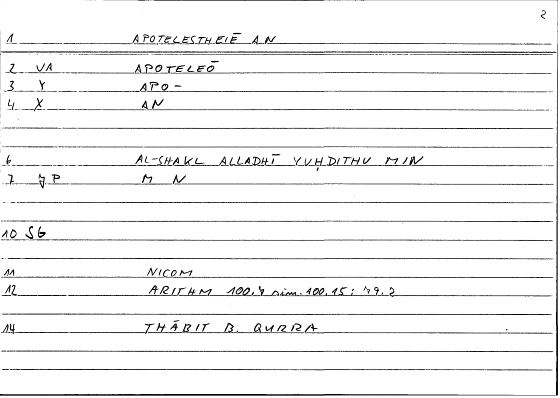 2
1 APOTELESTHEIĒ AN
2 VA APOTELEŌ
3 Y APO-
4 X AN
6 AL-SHAKL ALLADHĪ YUḤDITHU MIN
7 P M N
10 SG
11 NICOM
12 ARITHM 100. sim. 100.15;
14 THĀBIT B. QURRA